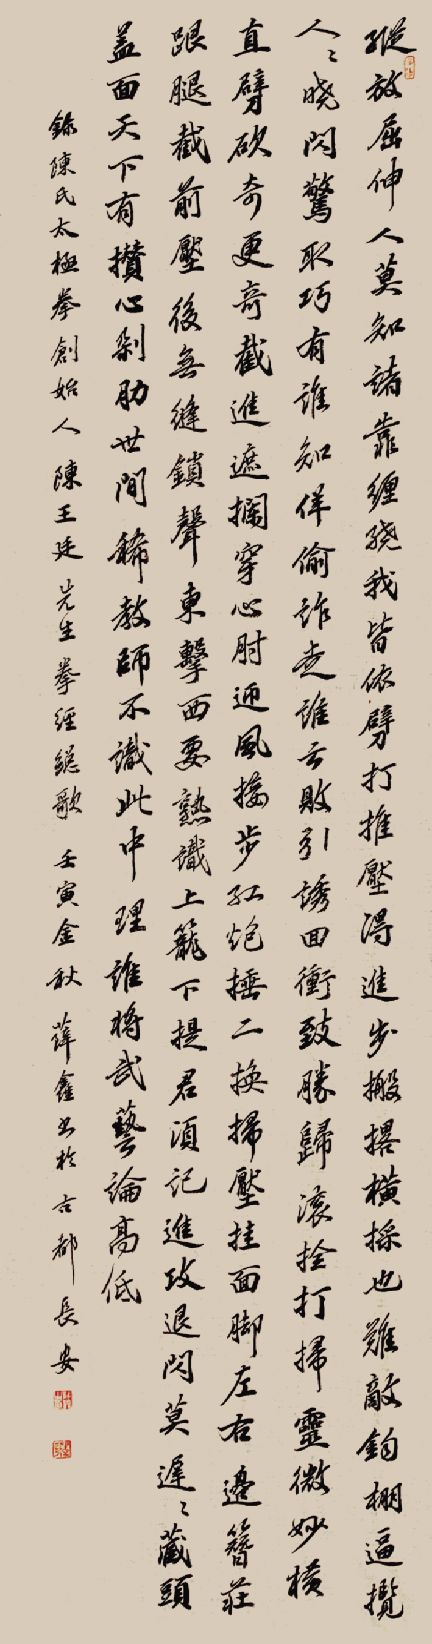 縱放屈伸人莫知諸靠纏繞我皆依劈打推壓得進步搬撂橫採也難敵鈎棚逼攬
人〻曉閃驚取巧有誰知佯偷詐走誰云敗引誘回衝致勝歸滾拴打掃靈微妙橫
直劈砍奇更奇截進遮攔穿心肘迎風接步紅炮捶二換掃壓挂面脚左右邊簪莊
跟腿截前壓後無縫鎖聲東擊西要熟識上籠下提君須記進攻退閃莫遲〻藏頭
蓋面天下有攢心剁肋世間稀教師不識此中理誰將武藝論高低
錄陳氏太極拳創始人陳王廷先生拳經總歌 壬寅金秋 薛鑫書於古都長安